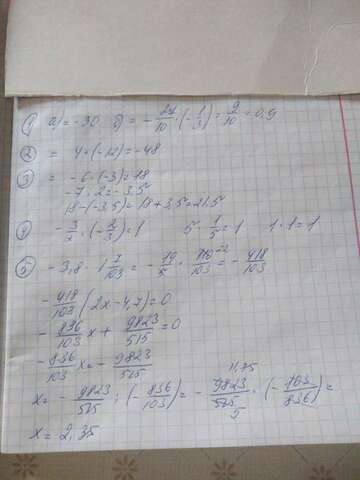 1) а) = -30 б) = - 27/10 · (- 1/3) = 9/10 = 0,9
2) = 4 · (-12) = -48
3) = -6 · (-3) = 18
-7 : 2 = -3,5
18 - (-3,5) = 18 + 3,5 = 21,5
4) · (- ) = 1 5 · 1/5 = 1 1 · 1 = 1
5) -3,8 · 1 7/103 = - 19/5 · 110 22/103 = - 418/103
- 418/103 (-2x - 4,7) = 0
- 836/103 x + 9823/515 = 0
- 836/103 x = - 9823/515
x = - 9823/515 : (- 836/103) = - 9823 11,75/515 5 · (- 103/836) =
x = 2,35